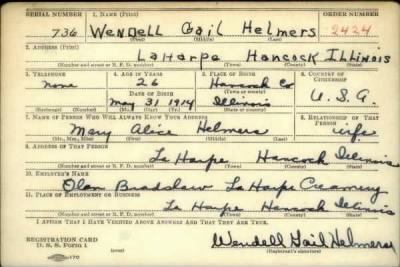 SERIAL NUMBER 1. NAME (Print) ORDER NUMBER
736 Wendell Gail Helmers 2424
(First) (Middle) (Last)
2. ADDRESS (Print)
LaHarpe Hancock Illinois
(Number and street or R. F. D. number) (Town) (County) (State)
3. TELEPHONE 4. AGE IN YEARS 5. PLACE OF BIRTH 6. COUNTRY OF CITIZENSHIP
none 26 Hancock Co
DATE OF BIRTH (Town or county)
May 31 1914 Illinois U.S.A.
(Exchange) (Number) (Mo.) (Day) (Yr.) (State or country)
7. NAME OF PERSON WHO WILL ALWAYS KNOW YOUR ADDRESS 8. RELATIONSHIP OF THAT PERSON
Mary Alice Helmers wife
(Mr., Mrs., Miss) (First) (Middle) (Last)
9. ADDRESS OF THAT PERSON
La Harpe Hancock Illinois
(Number and street or R. F. D. number) (Town) (County) (State)
10. EMPLOYER'S NAME
Olan Bradshaw La Harpe Creamery
11. PLACE OF EMPLOYMENT OR BUSINESS
La Harpe Hancock Illinois
(Number and street or R. F. D. number) (Town) (County) (State)
I AFFIRM THAT I HAVE VERIFIED ABOVE ANSWERS AND THAT THEY ARE TRUE.
REGISTRATION CARD
D. S. S. Form 1 Wendell Gail Helmers
(over) (Registrant's signature)